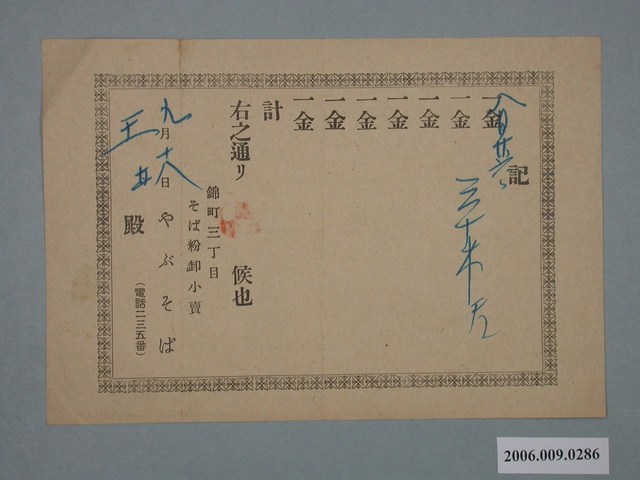 記
一金
一金
一金
一金
一金
一金
一金
計
右之通リ 候也
錦町三丁目
そば粉卸小賣
九月十八日 やぶそば
(電話二三五番)
玉井 殿
2006.009.0286